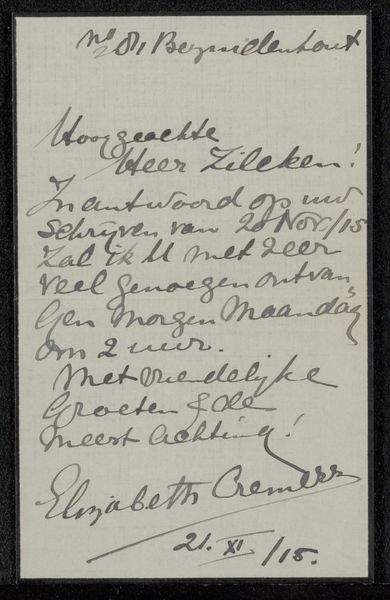 Bezuidenhout
Hooggeachte
Heer Zilcken!
In antwoord op uw
schrijven van 20 Nov./15
Zal ik U met zeer
veel genoegen ontvan
gen morgen Maandag
om 2 uur.
Met vriendelijke
Groeten & de
meest achting!
Elizabeth Cremers
21. XI /15.